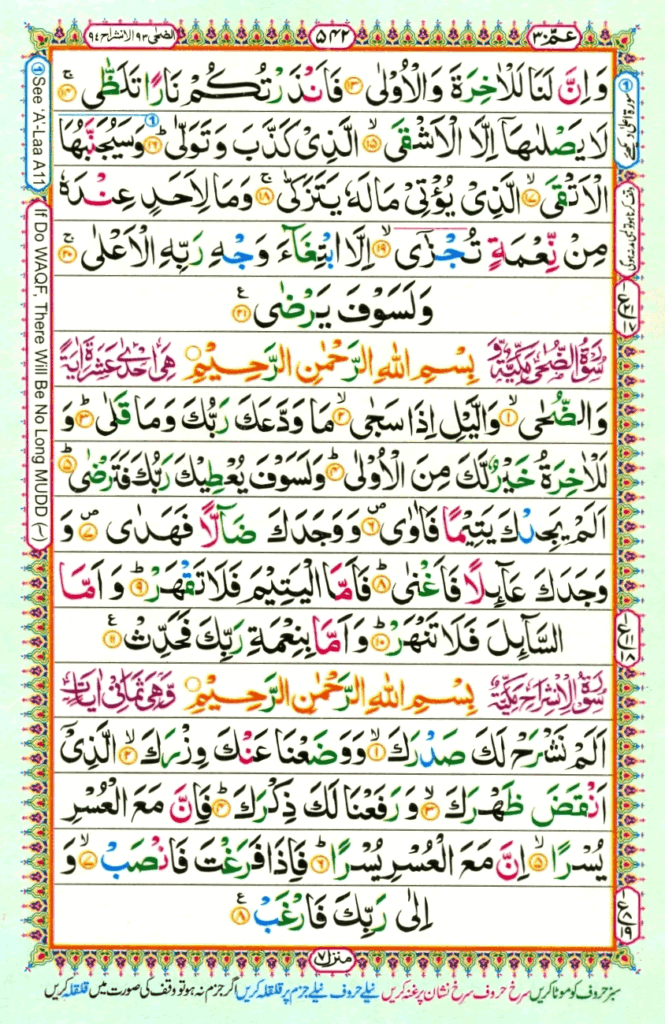 عمّ ۳۰
۵۴۲
الضحٰی ۹۳ الانشراح ۹۴
وَ اِنَّ لَنَا لَلْاٰخِرَةَ وَ الْاُوْلٰی ﴿۱۳﴾ فَاَنْذَرْتُكُمْ نَارًا تَلَظّٰی ﴿۱۴﴾ۚ
لَا يَصْلٰىهَاۤ اِلَّا الْاَشْقَی ﴿۱۵﴾ۙ الَّذِیْ كَذَّبَ وَ تَوَلّٰی ﴿۱۶﴾ؕ وَ سَيُجَنَّبُهَا
الْاَتْقَی ﴿۱۷﴾ۙ الَّذِیْ يُؤْتِیْ مَالَهٗ يَتَزَكّٰی ﴿۱۸﴾ۚ وَ مَا لِاَحَدٍ عِنْدَهٗ
مِنْ نِّعْمَةٍ تُجْزٰۤی ﴿۱۹﴾ۙ اِلَّا ابْتِغَآءَ وَجْهِ رَبِّهِ الْاَعْلٰی ﴿۲۰﴾ۚ
وَ لَسَوْفَ يَرْضٰی ﴿۲۱﴾ع
سُوْرَةُ الضُّحٰی مَكِّيَّةٌ وَّ بِسْمِ اللهِ الرَّحْمٰنِ الرَّحِيْمِ هِیَ اِحْدٰی عَشْرَةَ اٰيَةً
وَ الضُّحٰی ﴿۱﴾ۙ وَ الَّيْلِ اِذَا سَجٰی ﴿۲﴾ۙ مَا وَدَّعَكَ رَبُّكَ وَ مَا قَلٰی ﴿۳﴾ؕ وَ
لَلْاٰخِرَةُ خَيْرٌ لَّكَ مِنَ الْاُوْلٰی ﴿۴﴾ؕ وَ لَسَوْفَ يُعْطِيْكَ رَبُّكَ فَتَرْضٰی ﴿۵﴾ؕ
اَلَمْ يَجِدْكَ يَتِيْمًا فَاٰوٰی ﴿۶﴾۪ وَ وَجَدَكَ ضَآلًّا فَهَدٰی ﴿۷﴾۪ وَ
وَجَدَكَ عَآئِلًا فَاَغْنٰی ﴿۸﴾ؕ فَاَمَّا الْيَتِيْمَ فَلَا تَقْهَرْ ﴿۹﴾ؕ وَ اَمَّا
السَّآئِلَ فَلَا تَنْهَرْ ﴿۱۰﴾ؕ وَ اَمَّا بِنِعْمَةِ رَبِّكَ فَحَدِّثْ ﴿۱۱﴾ع
سُوْرَةُ الْاِنْشِرَاحِ مَكِّيَّةٌ بِسْمِ اللهِ الرَّحْمٰنِ الرَّحِيْمِ وَّ هِیَ ثَمَانِیْ اٰيَاتٍ
اَلَمْ نَشْرَحْ لَكَ صَدْرَكَ ﴿۱﴾ۙ وَ وَضَعْنَا عَنْكَ وِزْرَكَ ﴿۲﴾ۙ الَّذِیْۤ
اَنْقَضَ ظَهْرَكَ ﴿۳﴾ۙ وَ رَفَعْنَا لَكَ ذِكْرَكَ ﴿۴﴾ؕ فَاِنَّ مَعَ الْعُسْرِ
يُسْرًا ﴿۵﴾ۙ اِنَّ مَعَ الْعُسْرِ يُسْرًا ﴿۶﴾ؕ فَاِذَا فَرَغْتَ فَانْصَبْ ﴿۷﴾ۙ وَ
اِلٰی رَبِّكَ فَارْغَبْ ﴿۸﴾ع
See 'A'-Laa A11
If Do WAQF, There Will Be No Long MUDD (~)
منزل ۷
سبز حروف کو موٹا کریں سرخ حروف سرخ نشان پر غنہ کریں نیلے حروف نیلے جزم پر قلقلہ کریں اگر جزم نہ ہو تو وقف کی صورت میں قلقلہ کریں